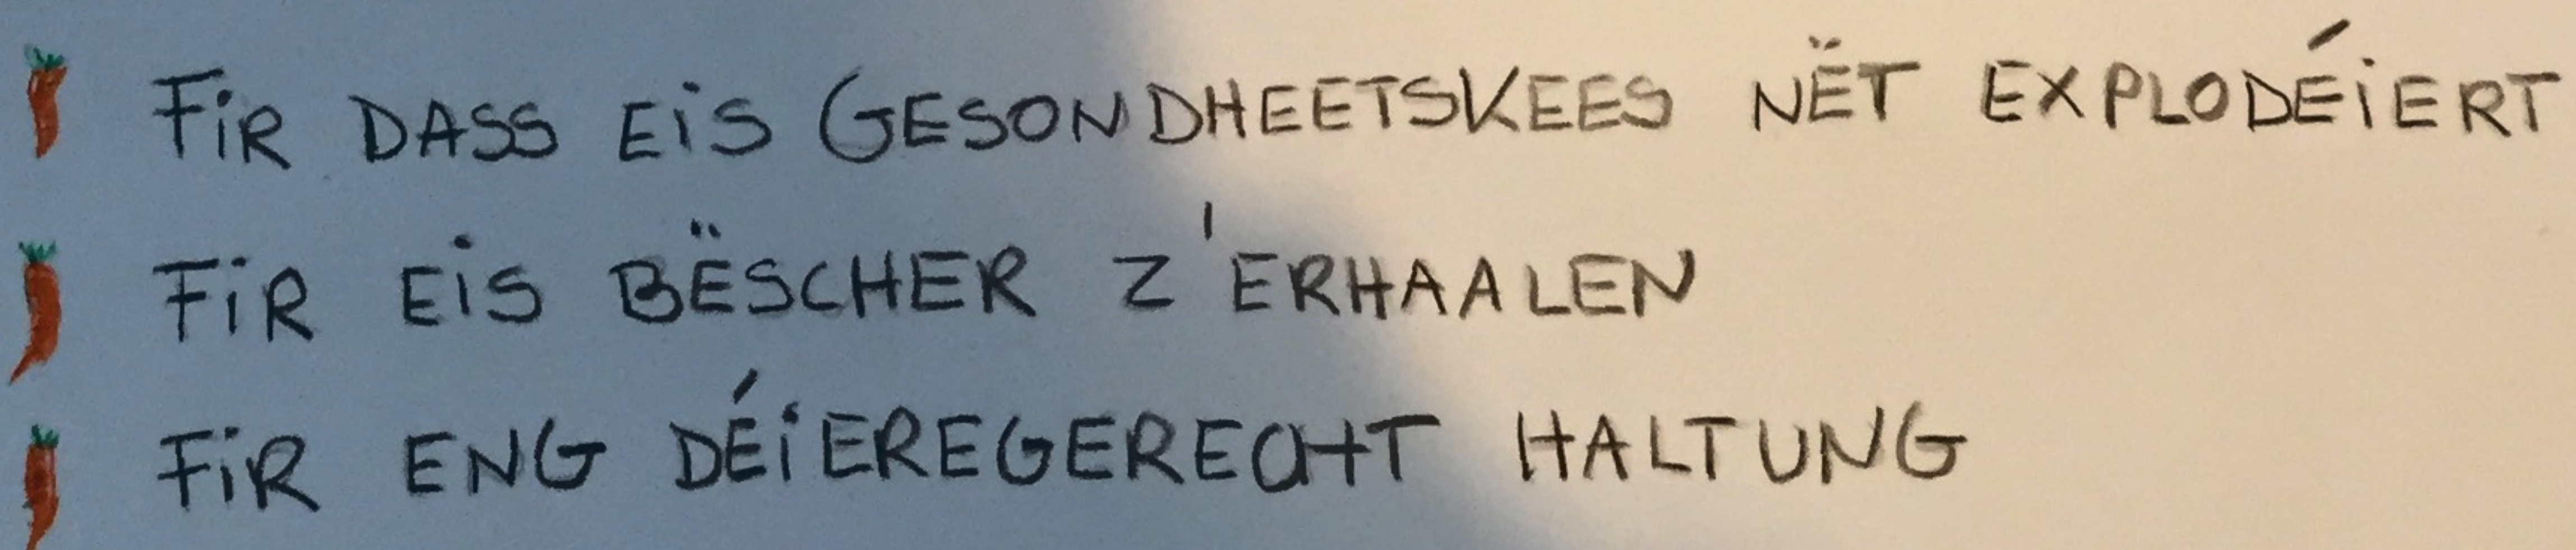 FIR DASS EIS GESONDHEETSKEES NËT EXPLODÉIERT
FIR EIS BËSCHER Z'ERHAALEN
FIR ENG DÉIEREGERECHT HALTUNG